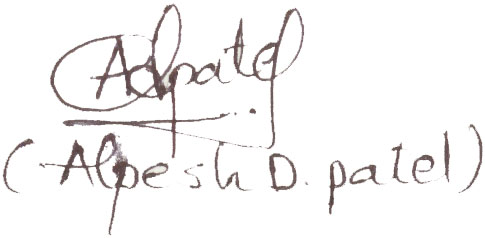 Adpatel
(Alpesh D. patel)